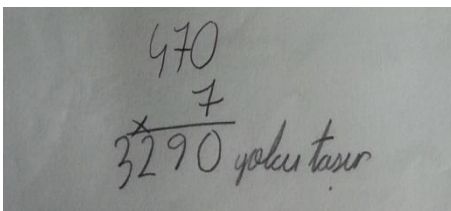 470
7
×
3290 yolcu taşır